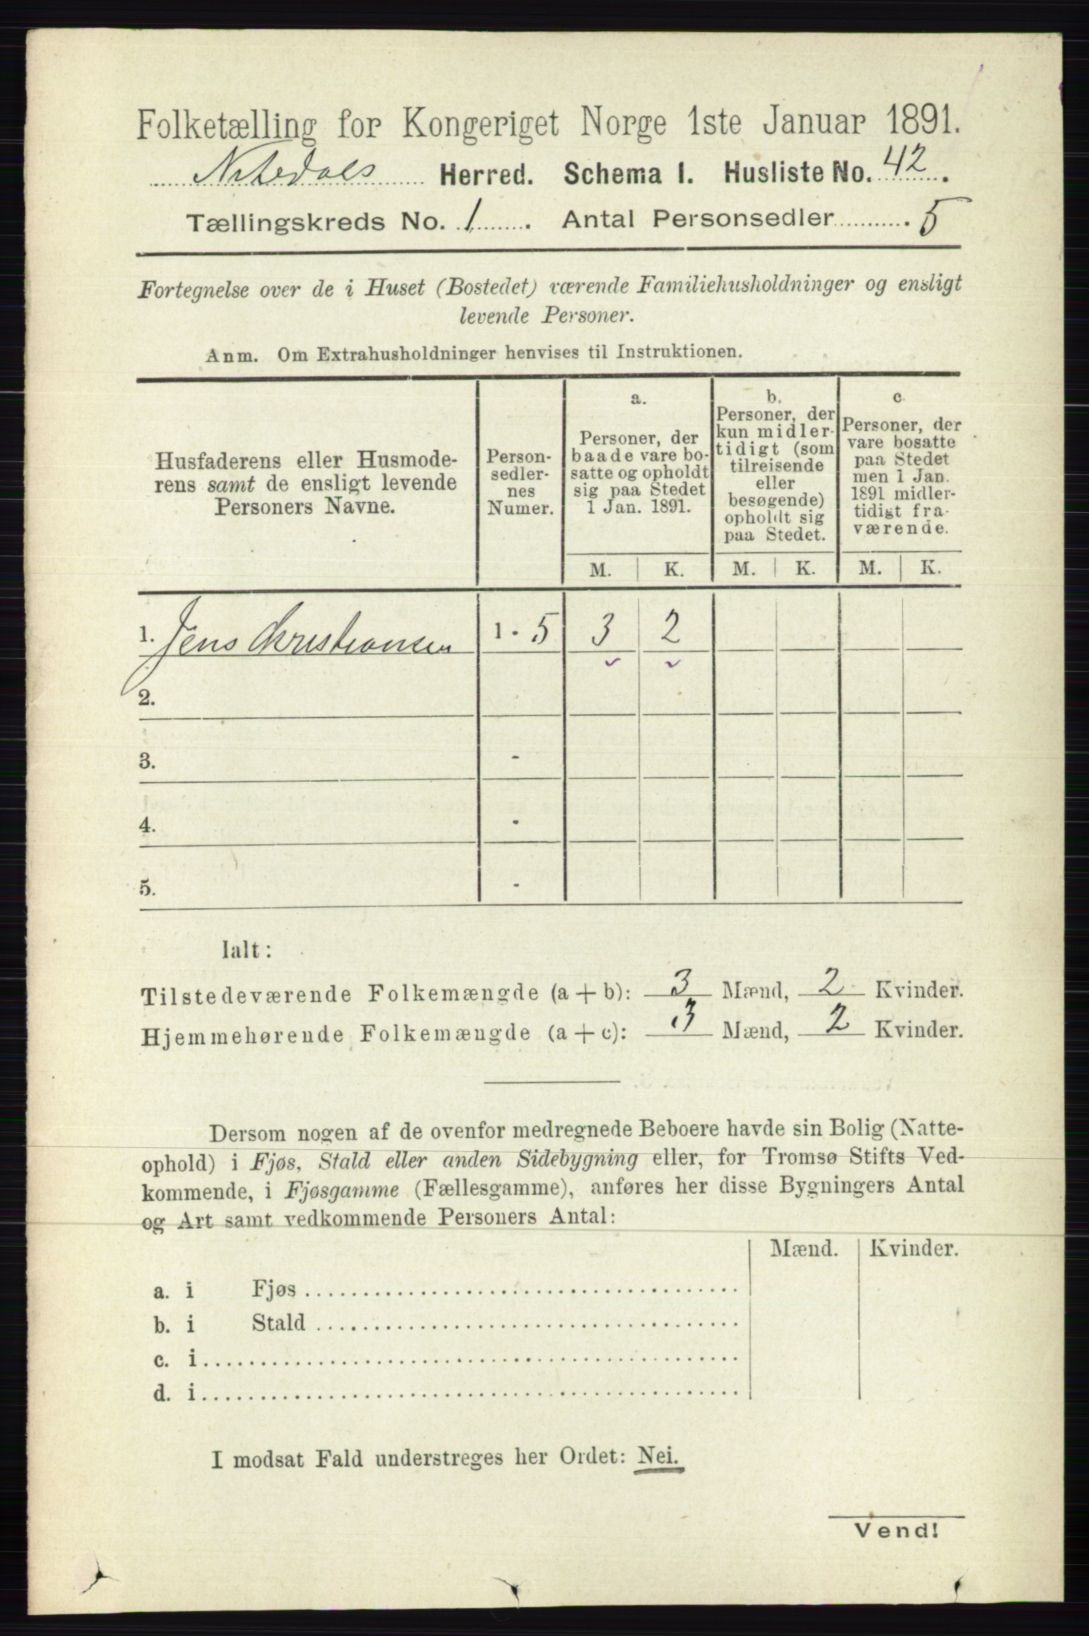 Folketælling for Kongeriget Norge 1ste Januar 1891.
Nitedals Herred. Schema I. Husliste No. 42.
Tællingskreds No. 1. Antal Personsedler 5
Fortegnelse over de i Huset (Bostedet) værende Familiehusholdninger og ensligt
levende Personer.
Anm. Om Extrahusholdninger henvises til Instruktionen.
Husfaderens eller Husmode-
rens samt de ensligt levende
Personers Navne.
Person-
sedler-
nes
Numer.
a.
Personer, der
baade vare bo-
satte og opholdt
sig paa Stedet
1 Jan. 1891.
b.
Personer, der
kun midler-
tidigt (som
tilreisende
eller
besøgende)
opholdt sig
paa Stedet.
c.
Personer, der
vare bosatte
paa Stedet
men 1 Jan.
1891 midler-
tidigt fra-
værende.
M. K. M. K. M. K.
1. Jens Christiansen 1 - 5 3 2
2. -
3. -
4. -
5. -
Ialt:
Tilstedeværende Folkemængde (a + b): 3 Mænd, 2 Kvinder.
Hjemmehørende Folkemængde (a + c): 3 Mænd, 2 Kvinder.
Dersom nogen af de ovenfor medregnede Beboere havde sin Bolig (Natte-
ophold) i Fjøs, Stald eller anden Sidebygning eller, for Tromsø Stifts Ved-
kommende, i Fjøsgamme (Fællesgamme), anføres her disse Bygningers Antal
og Art samt vedkommende Personers Antal:
Mænd. Kvinder.
a. i Fjøs
b. i Stald
c. i
d. i
I modsat Fald understreges her Ordet: Nei.
Vend!